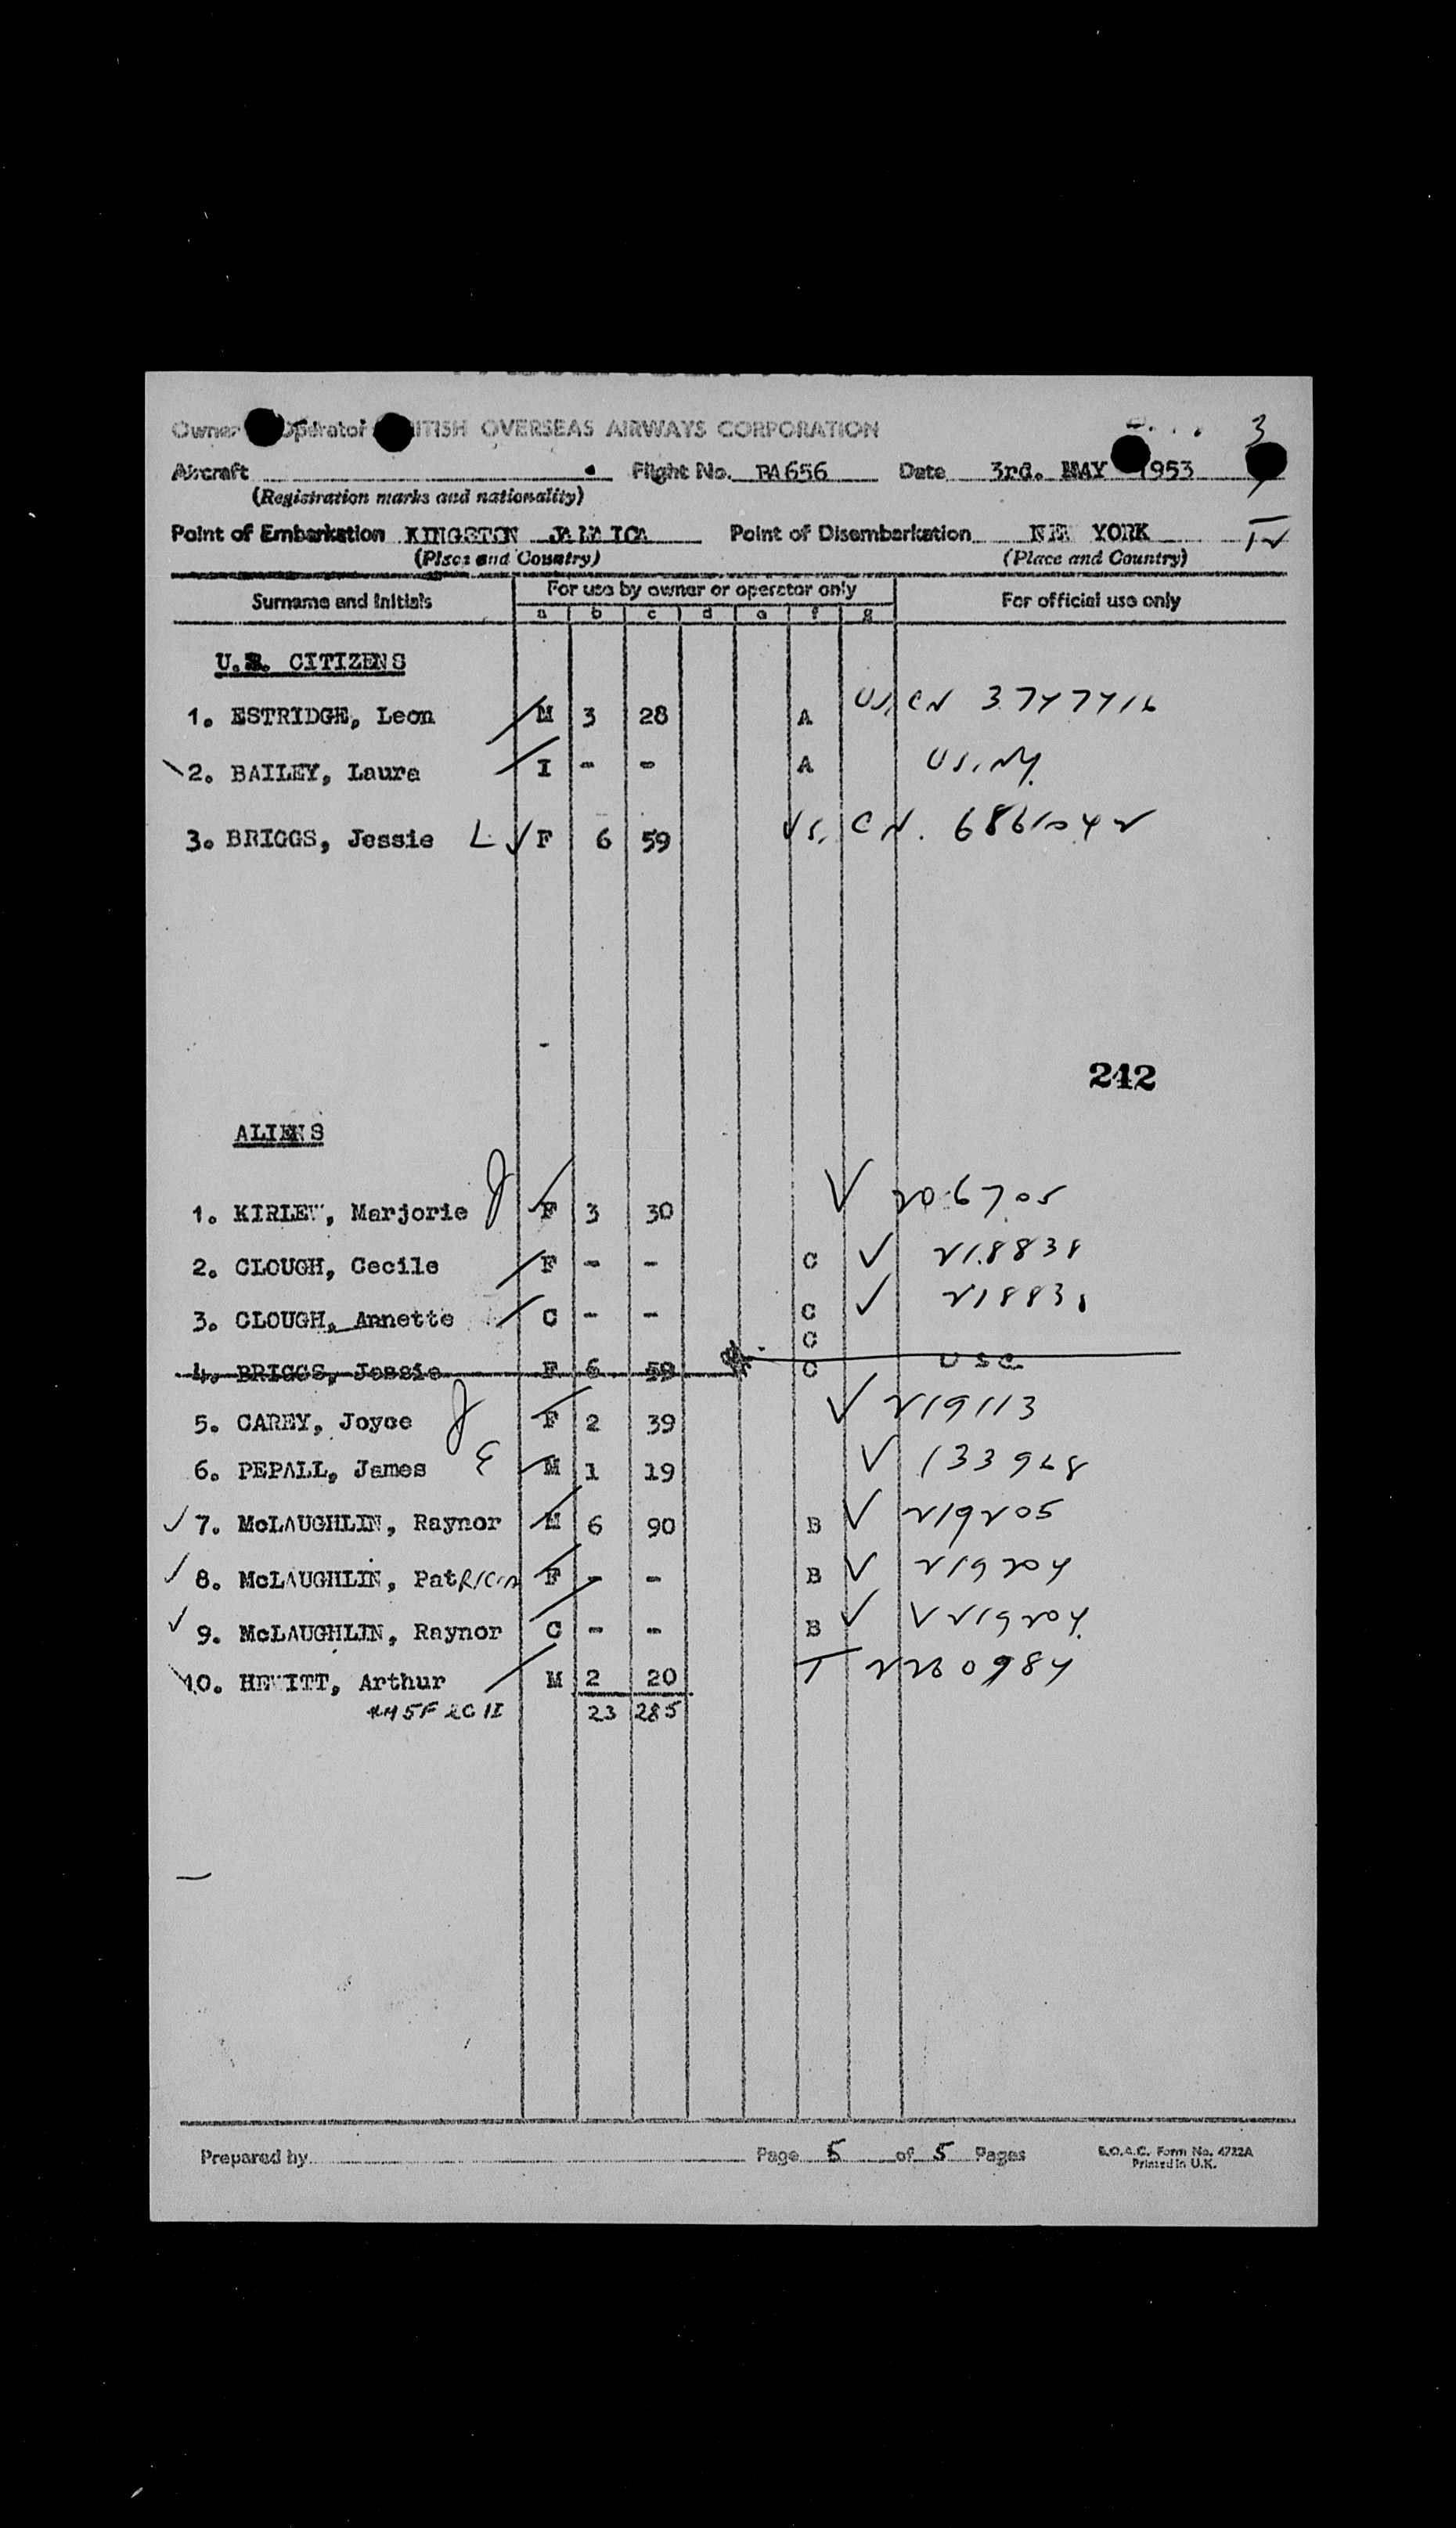 Owner Operator ITISH OVERSEAS AIRWAYS CORPORATION 3
Aircraft Flight No. BA656 Date 3rd. MAY 1953
(Registration marks and nationality)
Point of Embarkation KINGSTON JAMAICA Point of Disembarkation NEW YORK
(Place and Country) (Place and Country)
Surname and Initials For use by owner or operator only For official use only
a b c d e f g
U.S. CITIZENS
1. ESTRIDGE, Leon M 3 28 A US, CN 3747416
2. BAILEY, Laura I - - A US, NY.
3. BRIGGS, Jessie L ✓ F 6 59 US, CN. 6861042
242
ALIENS
1. KIRLEW, Marjorie J F 3 30 ✓ 206705
2. CLOUGH, Cecile F - - C ✓ 218838
3. CLOUGH, Annette C - - C ✓ 218838
C
4. BRIGGS, Jessie F 6 59 C USC
5. CAREY, Joyce J F 2 39 ✓ 219113
6. PEPALL, James E M 1 19 ✓ 133968
✓ 7. McLAUGHLIN, Raynor M 6 90 B ✓ 219205
✓ 8. McLAUGHLIN, PatRICIA F - - B ✓ 219204
✓ 9. McLAUGHLIN, Raynor C - - B ✓ V219204
10. HEWITT, Arthur M 2 20 T 2260984
4M 5F 2C 1I 23 285
Prepared by Page 5 of 5 Pages B.O.A.C. Form No. 4722A
Printed in U.K.